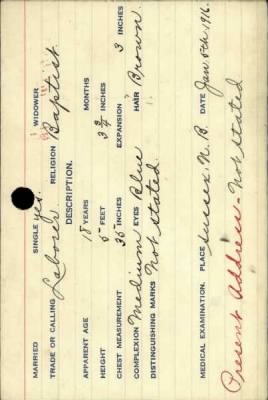 MARRIED SINGLE yes. WIDOWER
TRADE OR CALLING Laborer RELIGION Baptist
DESCRIPTION.
APPARENT AGE 18 YEARS MONTHS
HEIGHT 5 FEET 3 3/4 INCHES
CHEST MEASUREMENT 36 INCHES EXPANSION 3 INCHES
COMPLEXION Medium EYES Blue HAIR Brown.
DISTINGUISHING MARKS Not stated.
MEDICAL EXAMINATION. PLACE Sussex. N. B. DATE Jan 5th 1916.
Present Address - Not stated